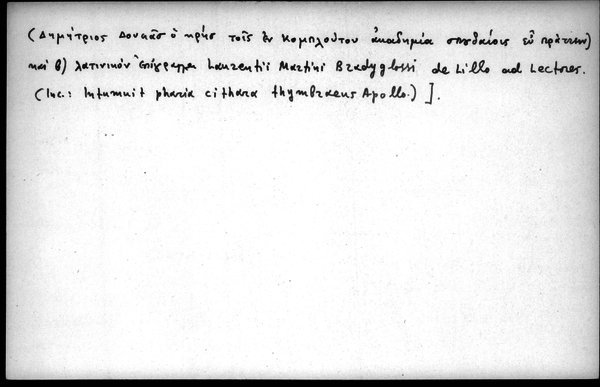 (Δημήτριος Δουκᾶσ ὁ κρήσ τοῖς ἐν κομπλούτου ἀκαδημία σπουδαίοις εὖ πράττειν)
καί β) λατινικόν ἐπίγραμμα Laurentii Martini Bradyglossi de Lillo ad Lectores.
(Inc.: Intumuit pharia cithara thymbraeus Apollo.) ].